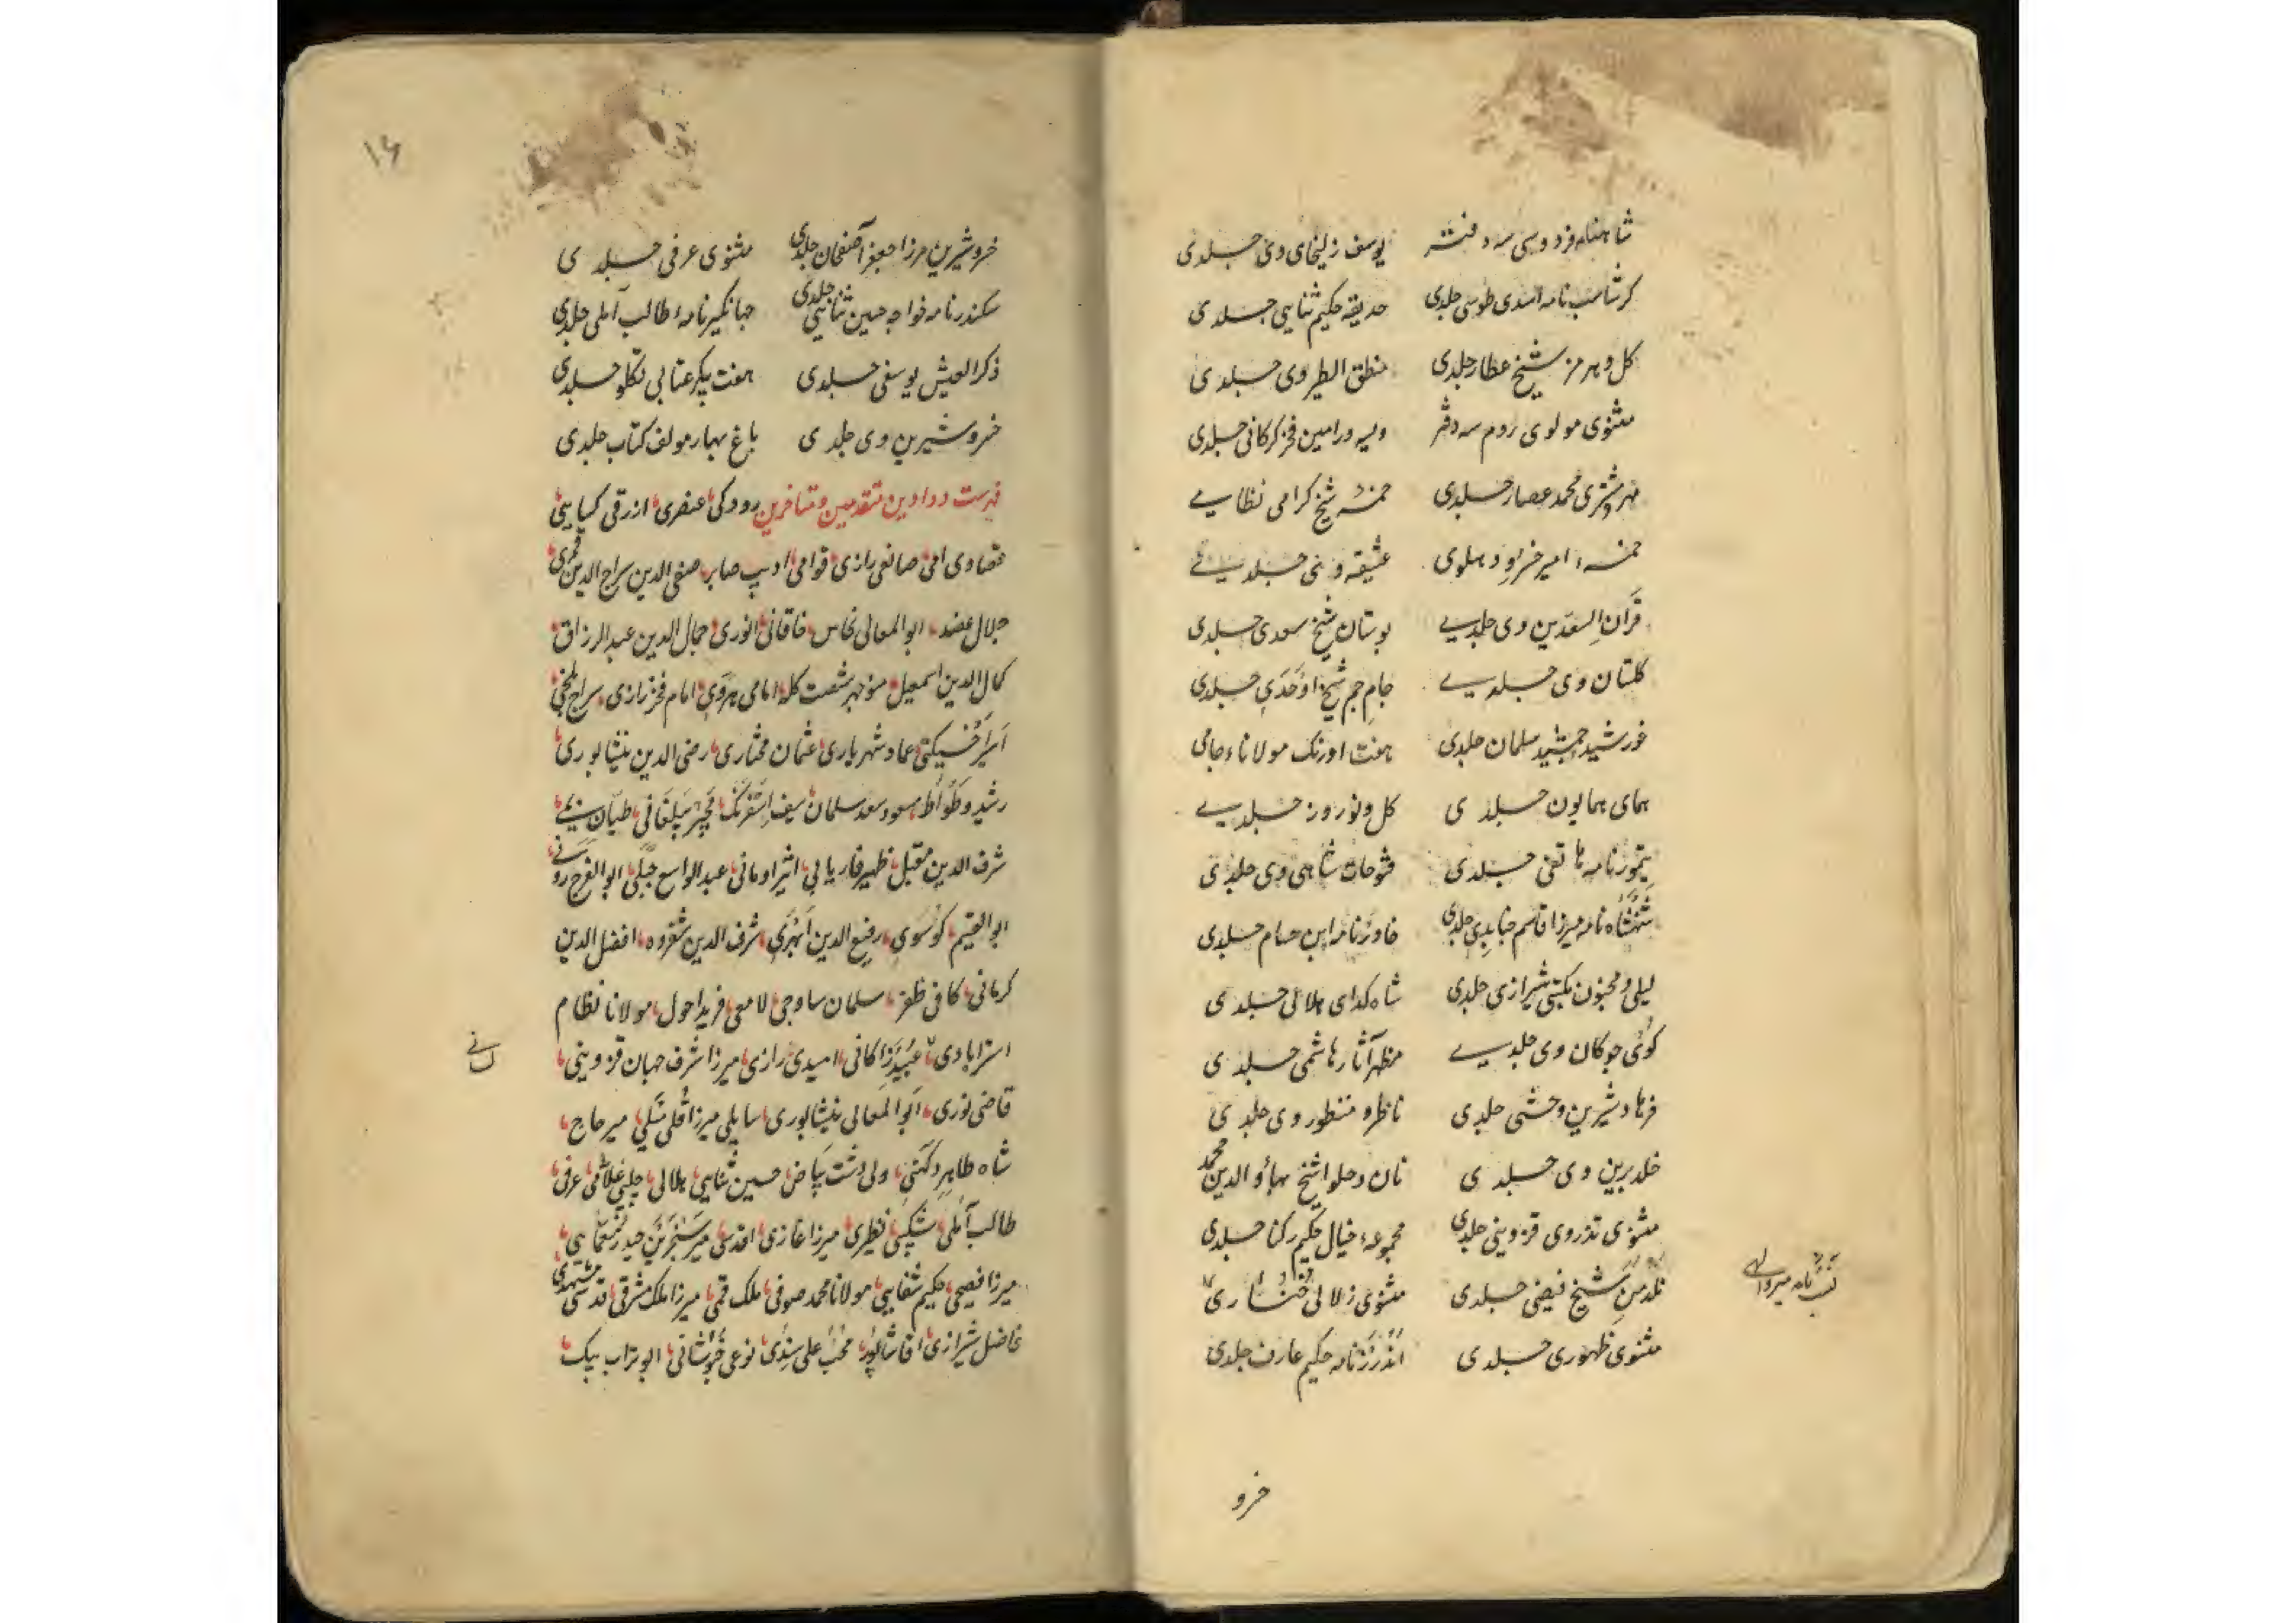 شاهنامه فردوسی سه دفتر یوسف زلیخای وی جلدی
کرشاسب نامه اسدی طوسی جلدی حدیقه حکیم ثنایی جلدی
کل و هرمز شیخ عطار جلدی منطق الطیر وی جلدی
مثنوی مولوی روم سه دفتر ویسه و رامین فخر کرکانی جلدی
مهر و مشتری محمد عصار جلدی خمسهٔ شیخ کرامی نظامی
خمسهٔ امیر خسرو دهلوی عشیقه وی جلدی
قران السعدین وی جلدی بوستان شیخ سعدی جلدی
کلستان وی جلدی جام جم شیخ اوحدی جلدی
خورشید جمشید سلمان جلدی هفت اورنک مولاناء جامی
همای همایون جلدی کل و نوروز جلدی
تیمورنامه هاتفی جلدی فتوحات شاهی وی جلدی
شهنشاه نامه میرزا قاسم جنابدی جلدی خاورنامه ابن حسام جلدی
لیلی و مجنون مکتبی شیرازی جلدی شاه کدای هلالی جلدی
کوی چوکان وی جلدی مظهر آثار هاشمی جلدی
فرهاد شیرین وحشی جلدی ناظر و منظور وی جلدی
خلد برین وی جلدی نان و حلوا شیخ بهاؤ الدین محمد
مثنوی تذروی قزوینی جلدی مجموعهٔ خیال حکیم رکنا جلدی
نلدمن شیخ فیضی جلدی مثنوی زلالی خنساری
مثنوی ظهوری جلدی اندرزنامه حکیم عارف جلدی
خسرو
۱۶
خسرو شیرین مرزا جعفر آصفخان جلدی مثنوی عرفی جلدی
سکندرنامه خواجه حسین ثنایی جلدی جهانکیرنامهٔ طالب آملی جلدی
ذکر العیش یوسفی جلدی هفت پیکر عتابی تکلو جلدی
خسرو شیرین وی جلدی باغ بهار مولف کتاب جلدی
فهرست دواوین متقدمین و متاخرین رودکی عنصری ازرقی کسایی
صانعی رازی قوامی ادیب صابر صفی الدین سراج الدین قمری
جلال عضد ابو المعالی نحاس خاقانی انوری جمال الدین عبد الرزاق
کمال الدین اسمعیل منوچهر شصت کله امامی هروی امام فخر رازی سراج بلخی
اثیر اخسیکتی عماد شهریاری عثمان مختاری رضی الدین نیشابوری
رشید وطواط مسعود سعد سلمان سیف اسفرنک مجیر بیلقانی طیان بمی
شرف الدین مقبل ظهیر فاریابی اثیر اومانی عبد الواسع جبلی ابو الفرج رونی
کوسوی رفیع الدین ابهری شرف الدین شفروه افضل الدین
کرمانی کافی ظفر سلمان ساوجی لامعی فرید احول مولانا نظام
استرابادی عبید زاکانی امیدی رازی میرزا شرف جهان قزوینی لسانی
قاضی نوری ابو المعالی نیشابوری سایلی میرزا قلی میلی میر حاج
شاه طاهر دکنی ولی دشت بیاض حسین ثنایی هلالی عرفی
طالب آملی شکیبی نظیری میرزا غازی اقدسی میر سنجر بن حیدر معمایی
میرزا فصیحی حکیم شفایی مولانا محمد صوفی ملک قمی میرزا ملک مشرقی قدسی مشهدی
فاضل شیرازی اقا شاپور محب علی سندی نوعی خبوشانی ابو تراب بیک